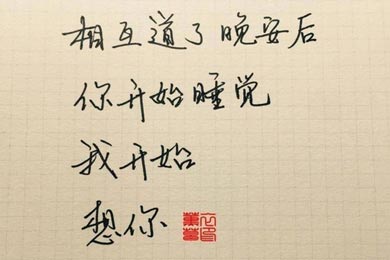 相互道了晚安后
你开始睡觉
我开始
想你